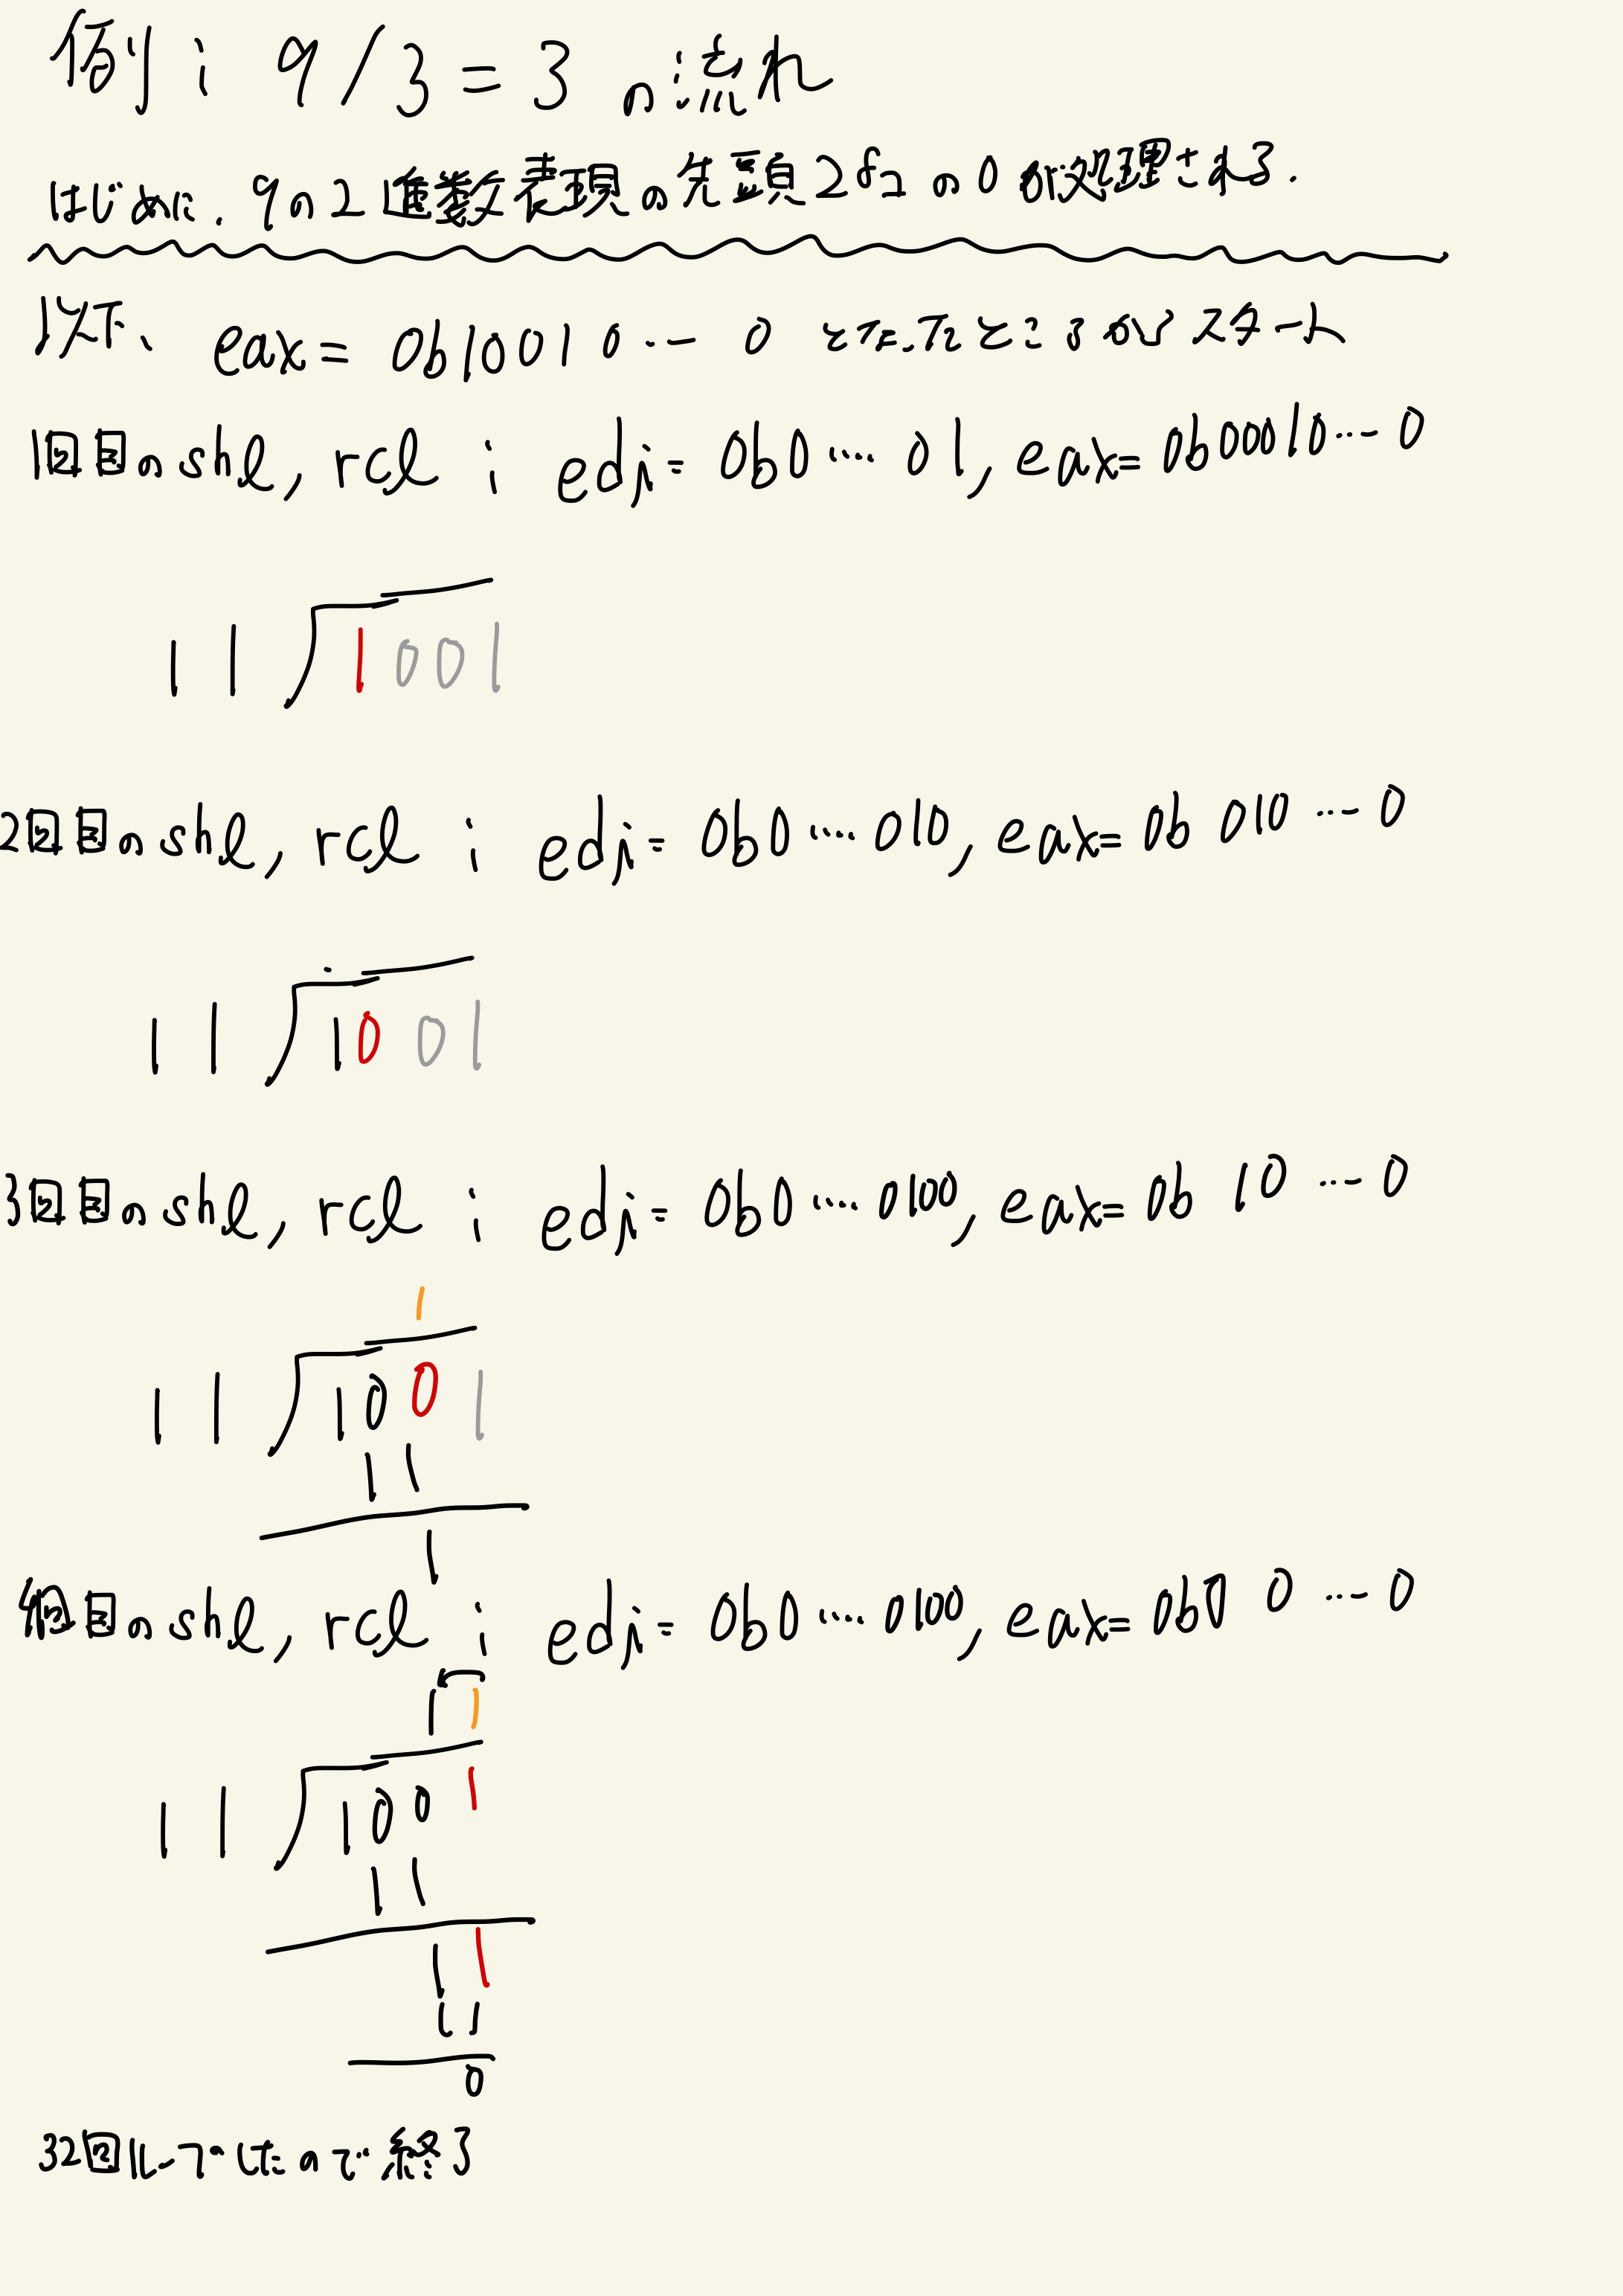 例: 9/3=3 の流れ
はじめに、9の2進数表現の先頭28コの0が処理される.
以下、eax=0b10010…0 となったところからスタート
1回目のshl, rcl : edi=0b0…01, eax=0b00010…0
11 1001
2回目のshl, rcl : edi=0b0…010, eax=0b010…0
11 1001
3回目のshl, rcl : edi=0b0…0100, eax=0b10…0
1
11 1001
11
1
4回目のshl, rcl : edi=0b0…0100, eax=0b00…0
11
11 1001
11
11
11
0
32回ループしたので終了